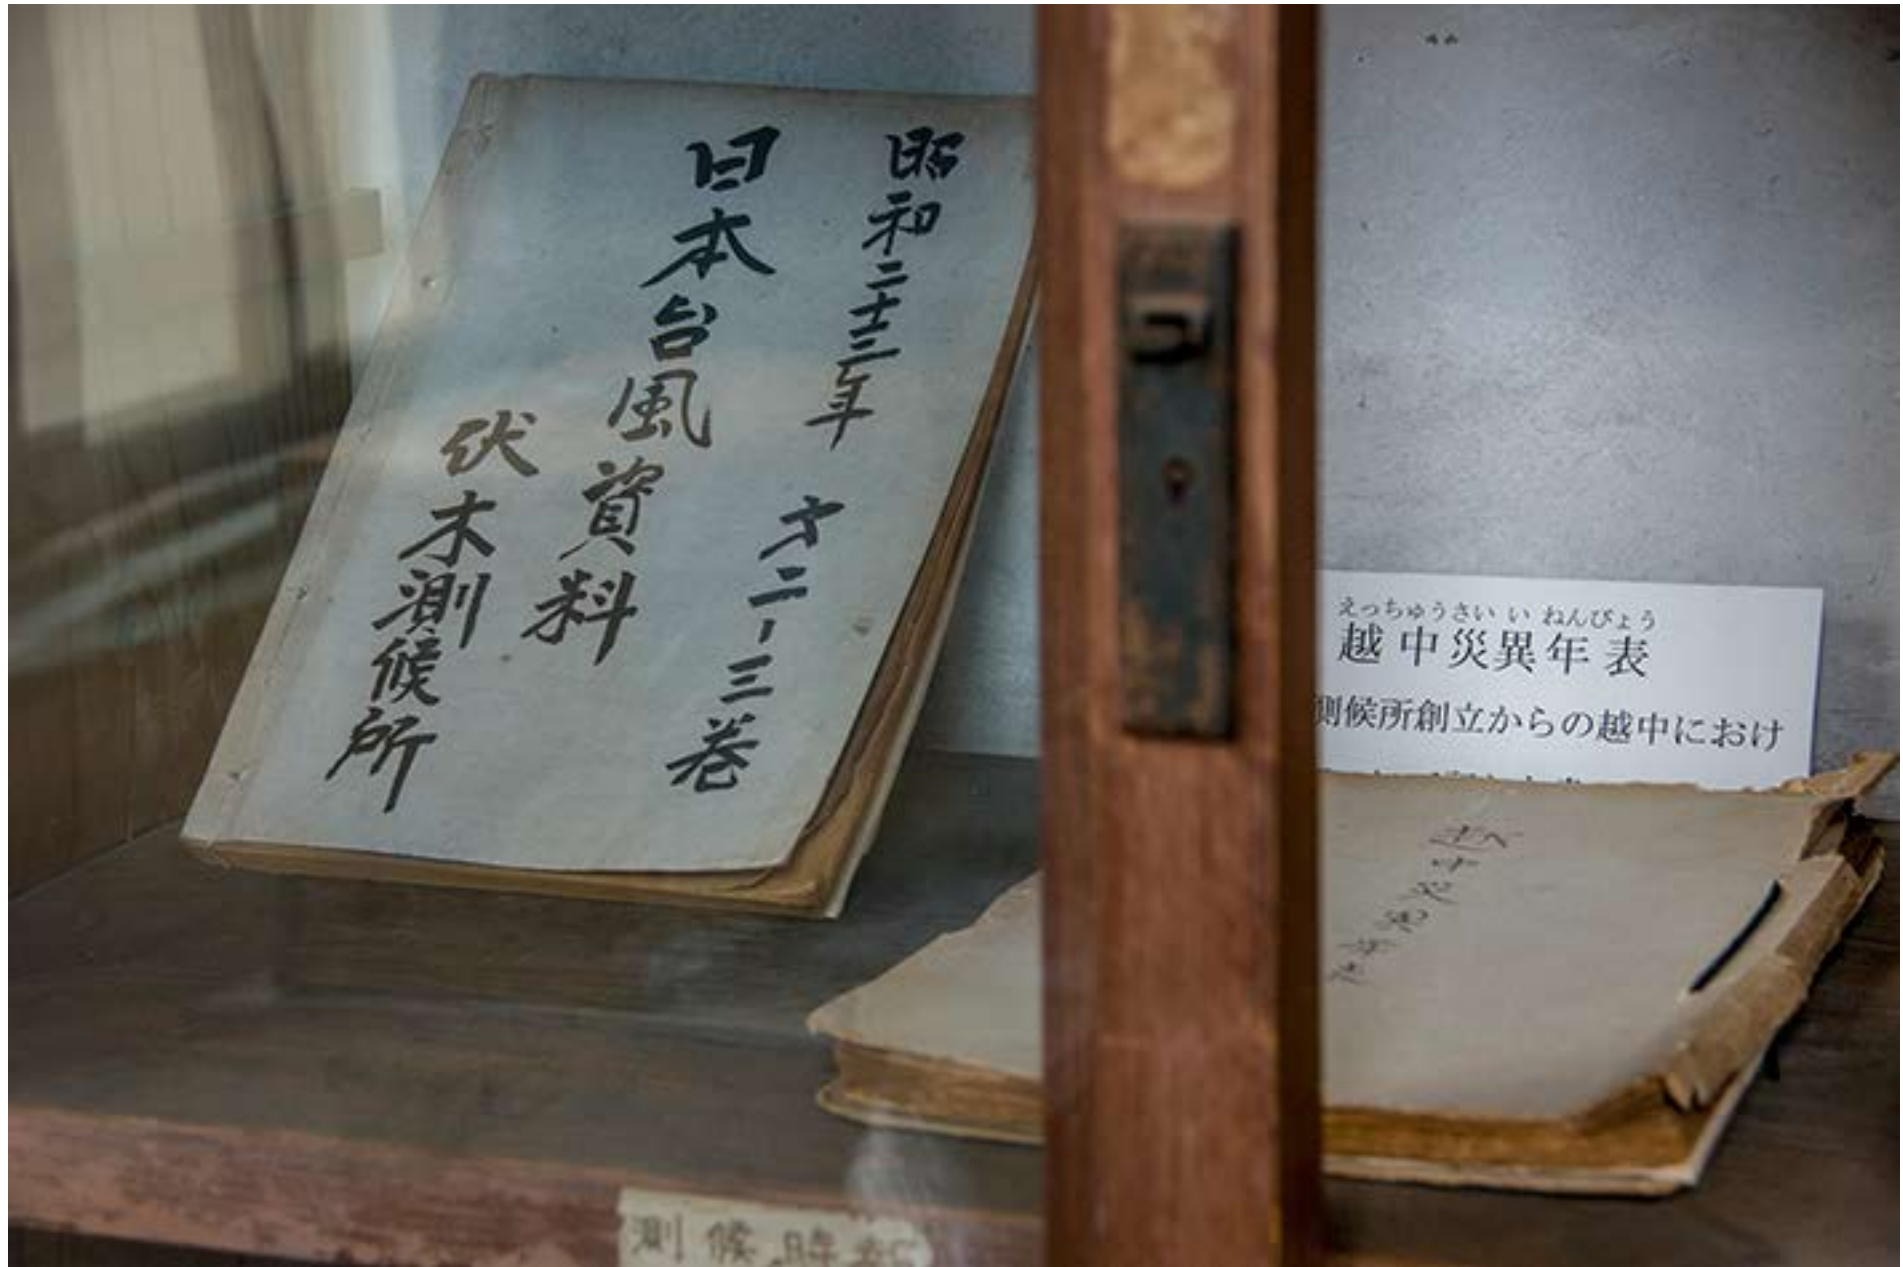 昭和二十三年 才二-三巻
日本台風資料
伏木測候所
えっちゅうさいいねんぴょう
越中災異年表
測候所創立からの越中におけ
越中災異年表
測候時報